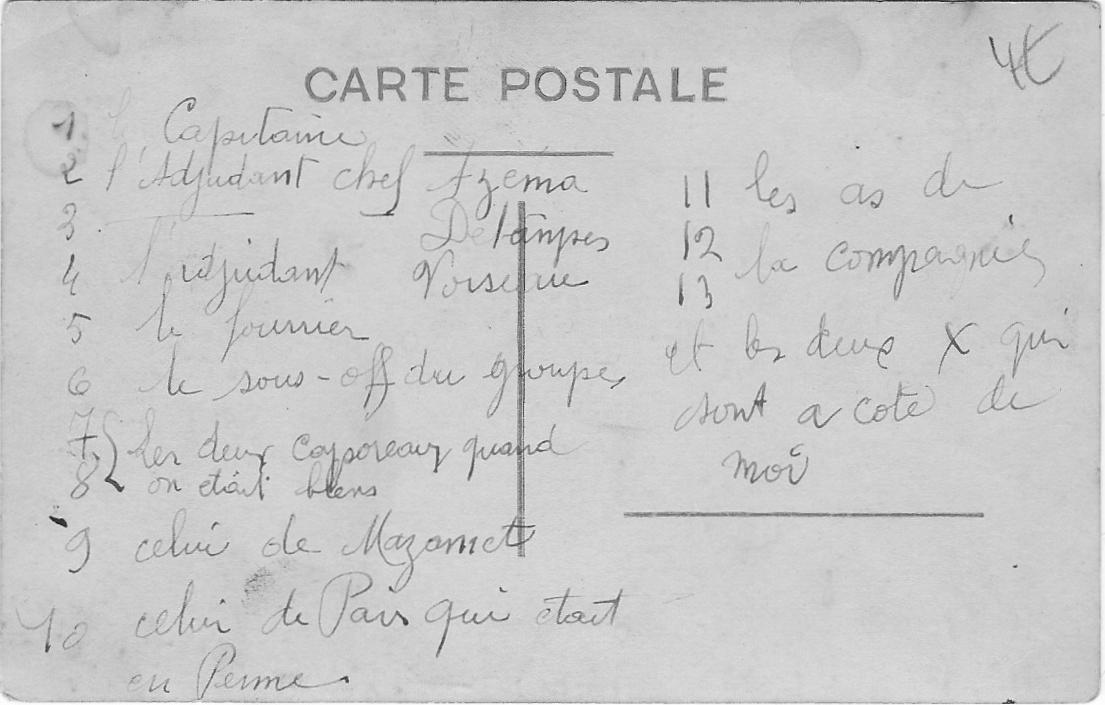 4€
CARTE POSTALE
1. le Capitaine
2 l'Adjudant chef Azéma
3 Delampes
4 l'adjudant Voiseau
5 le fourrier
6 le sous-off du groupe,
7 Les deux caporeaux quand
8 on etait bleus
9 celui de Mazamet
10 celui de Paris qui etait
en Perme.
11 les as de
12 la compagnie,
13
et les deux X qui
sont a coté de
moi